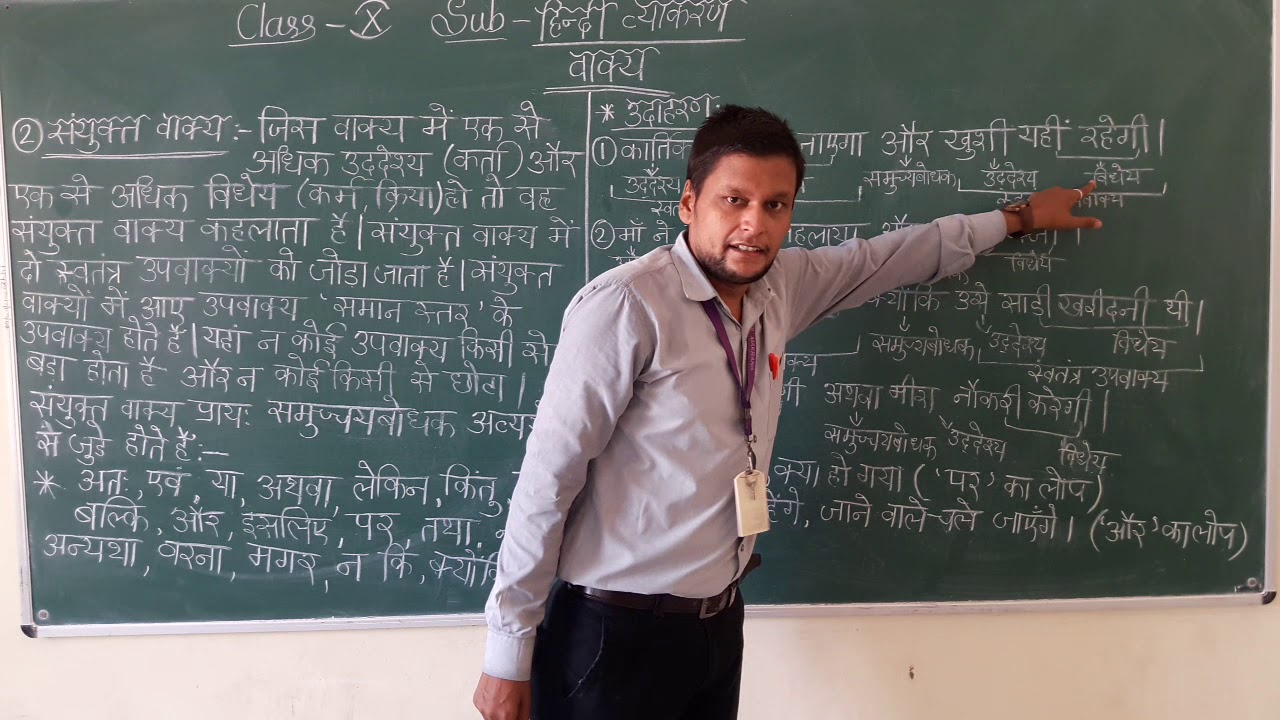 Class - X Sub - हिन्दी व्याकरण
वाक्य
② संयुक्त वाक्य :- जिस वाक्य में एक से
अधिक उद्देश्य (कर्ता) और
एक से अधिक विधेय (कर्म, क्रिया) हो तो वह
संयुक्त वाक्य कहलाता है। संयुक्त वाक्य में
दो स्वतंत्र उपवाक्यों को जोड़ा जाता है। संयुक्त
वाक्यों में आए उपवाक्य 'समान स्तर' के
उपवाक्य होते हैं। यहां न कोई उपवाक्य किसी से
बड़ा होता है और न कोई किसी से छोटा।
संयुक्त वाक्य प्रायः समुच्चयबोधक
से जुड़े होते हैं :-
* अतः, एवं, या, अथवा, लेकिन, किंतु,
बल्कि, और, इसलिए, पर, तथा,
अन्यथा, वरना, मगर, न कि,
* उदाहरण:
① और खुशी यहीं रहेगी।
उद्देश्य समुच्यबोधक उद्देश्य विधेय
② माँ ने
विधेय
क्योंकि उसे साड़ी खरीदनी थी।
समुच्यबोधक उद्देश्य विधेय
स्वतंत्र उपवाक्य
अथवा मीरा नौकरी करेगी।
समुच्चयबोधक उद्देश्य विधेय
क्या हो गया ('पर' का लोप)
जाने वाले चले जाएँगे। ('और' का लोप)